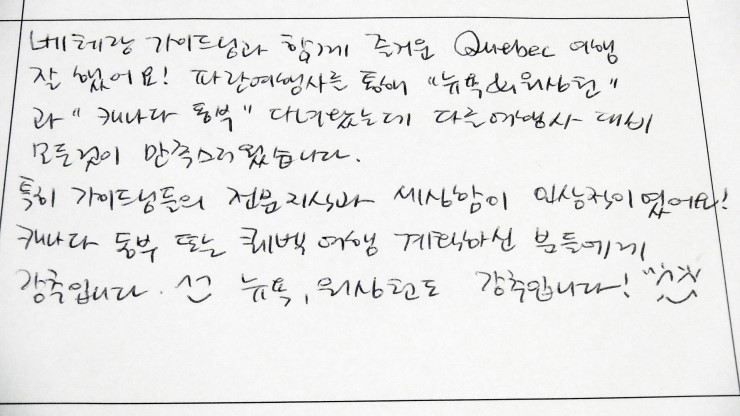 베테랑 가이드님과 함께 즐거운 Quebec 여행
잘 했어요! 파란여행사를 통해 "뉴욕&워싱턴"
과 "캐나다 동부" 다녀왔는데 다른여행사 대비
모든것이 만족스러웠습니다.
특히 가이드님들의 전문지식과 세심함이 인상적이였어요!
캐나다 동부 또는 퀘벡 여행 계획하신 분들에게
강추입니다. ^^ 뉴욕, 워싱턴도 강추입니다!